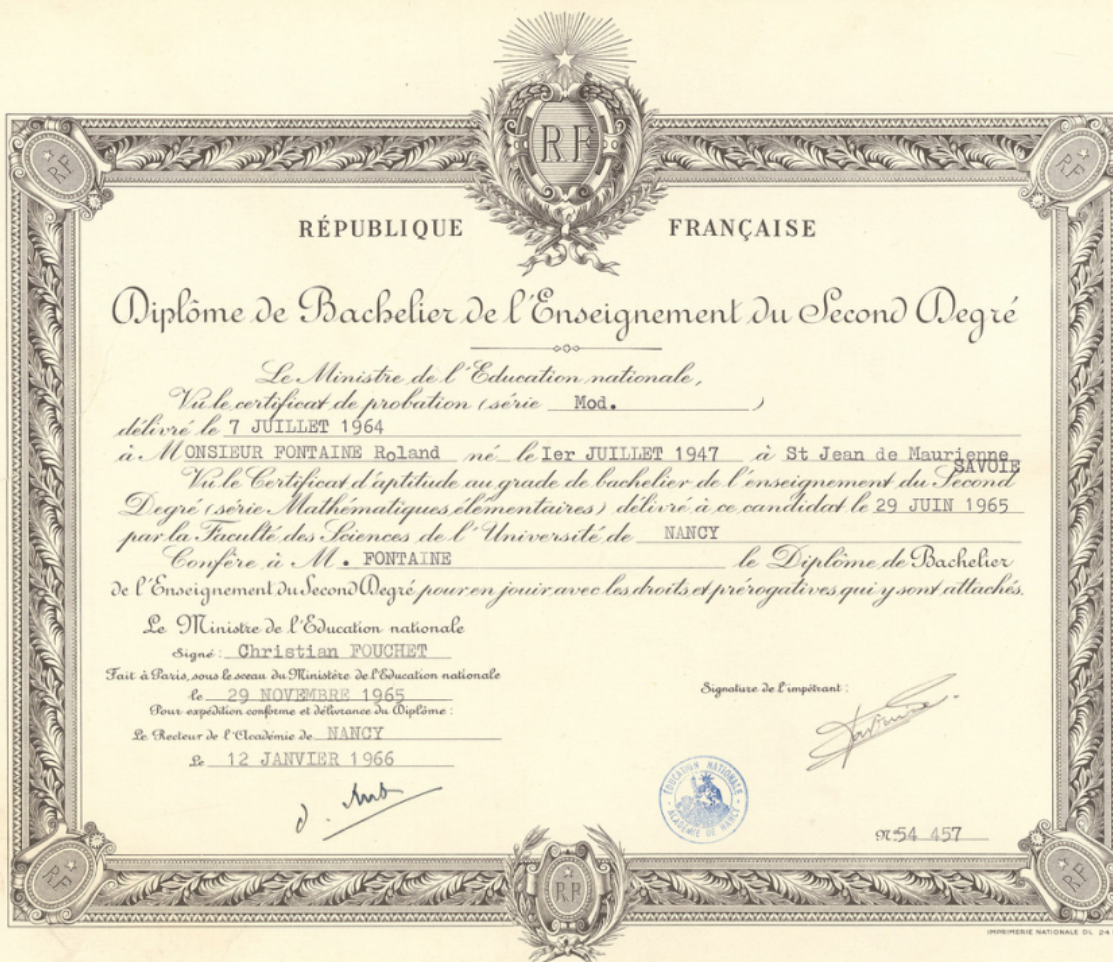 RF
RF
RF
RÉPUBLIQUE FRANÇAISE
Diplôme de Bachelier de l'Enseignement du Second Degré
Le Ministre de l'Education nationale,
Vu le certificat de probation (série Mod. )
délivré le 7 JUILLET 1964
à MONSIEUR FONTAINE Roland né le Ier JUILLET 1947 à St Jean de Maurienne
SAVOIE
Vu le Certificat d'aptitude au grade de bachelier de l'enseignement du Second
Degré (série Mathématiques élémentaires) délivré à ce candidat le 29 JUIN 1965
par la Faculté des Sciences de l'Université de NANCY
Confère à M. FONTAINE le Diplôme de Bachelier
de l'Enseignement du Second Degré pour en jouir avec les droits et prérogatives qui y sont attachés.
Le Ministre de l'Education nationale
Signé : Christian FOUCHET
Fait à Paris, sous le sceau du Ministère de l'Education nationale
le 29 NOVEMBRE 1965
Pour expédition conforme et délivrance du Diplôme :
Le Recteur de l'Académie de NANCY
Le 12 JANVIER 1966
Signature de l'impétrant :
ÉDUCATION NATIONALE
ACADÉMIE DE NANCY
N° 54 457
RF
RF
RF
IMPRIMERIE NATIONALE DL 24